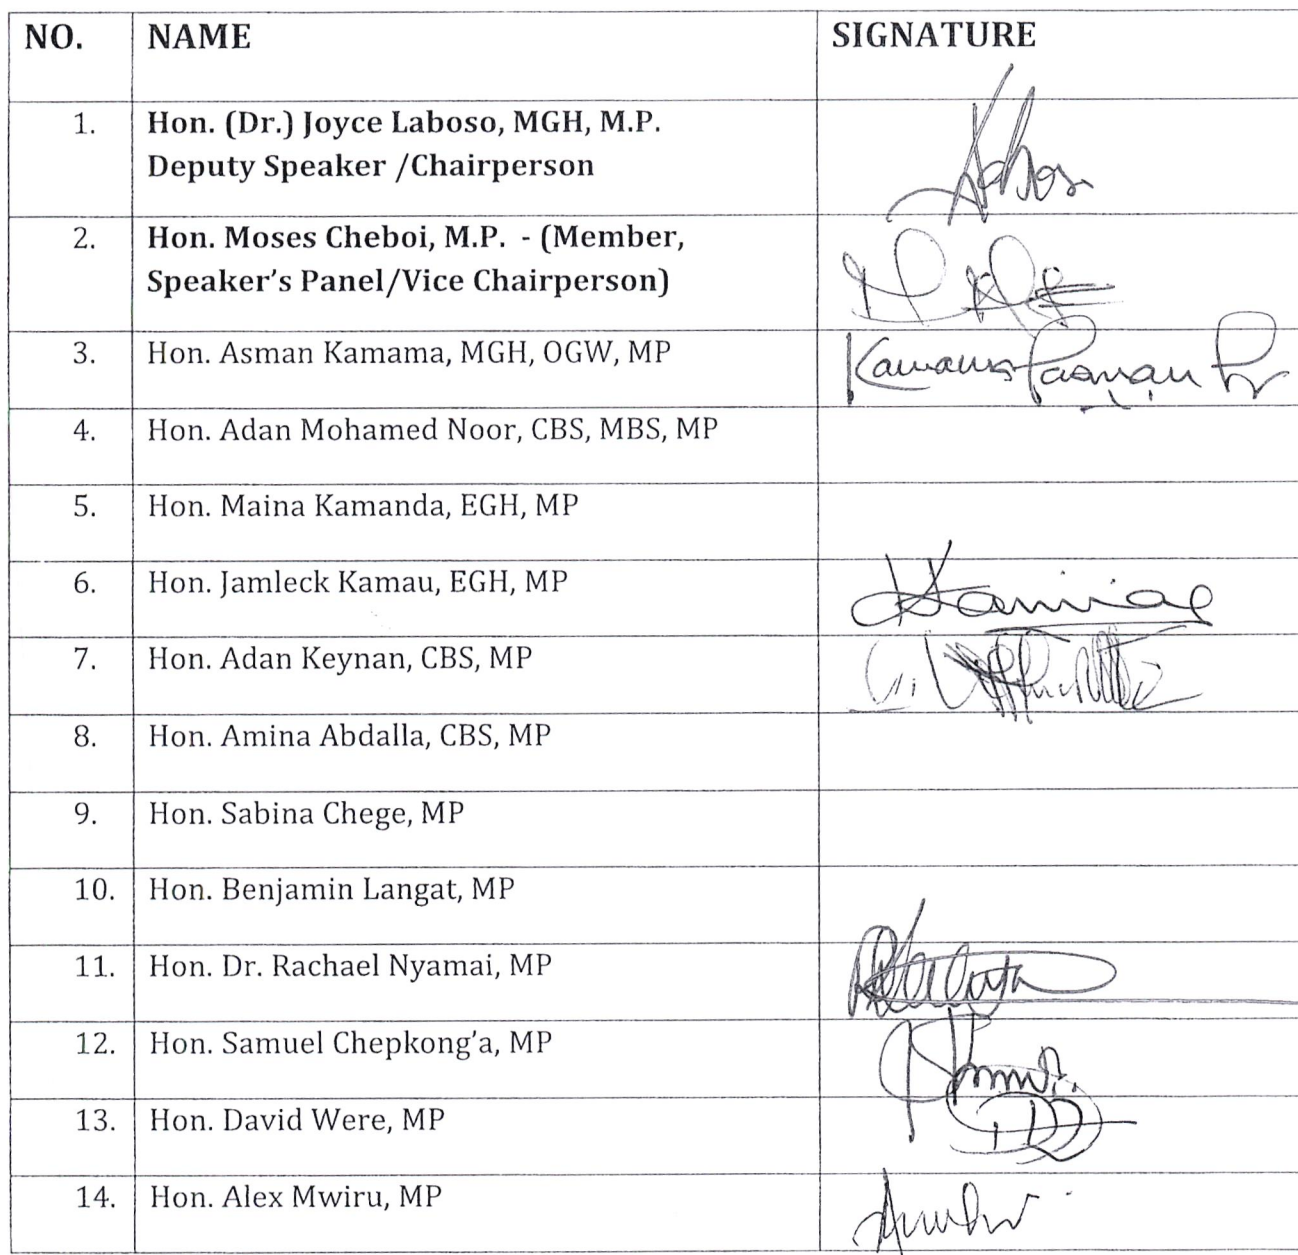 NO. NAME SIGNATURE
1. Hon. (Dr.) Joyce Laboso, MGH, M.P.
Deputy Speaker /Chairperson
2. Hon. Moses Cheboi, M.P. - (Member,
Speaker's Panel/Vice Chairperson)
3. Hon. Asman Kamama, MGH, OGW, MP
4. Hon. Adan Mohamed Noor, CBS, MBS, MP
5. Hon. Maina Kamanda, EGH, MP
6. Hon. Jamleck Kamau, EGH, MP
7. Hon. Adan Keynan, CBS, MP
8. Hon. Amina Abdalla, CBS, MP
9. Hon. Sabina Chege, MP
10. Hon. Benjamin Langat, MP
11. Hon. Dr. Rachael Nyamai, MP
12. Hon. Samuel Chepkong'a, MP
13. Hon. David Were, MP
14. Hon. Alex Mwiru, MP